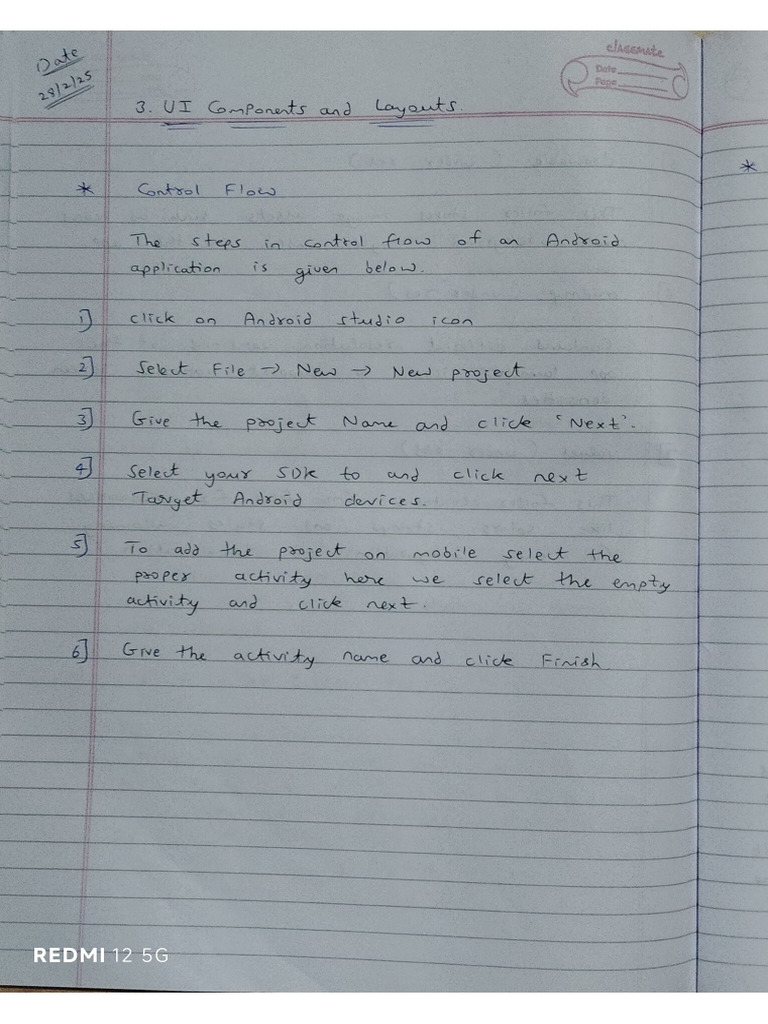 Date
28/2/25
classmate
Date
Page
3. UI Components and Layouts.
* Control Flow
The steps in control flow of an Android
application is given below.
1] click on Android studio icon
2] Select File → New → New project
3] Give the project Name and click 'Next'.
4] Select your SDK to and click next
Target Android devices.
5] To add the project on mobile select the
proper activity here we select the empty
activity and click next.
6] Give the activity name and click Finish
*
REDMI 12 5G